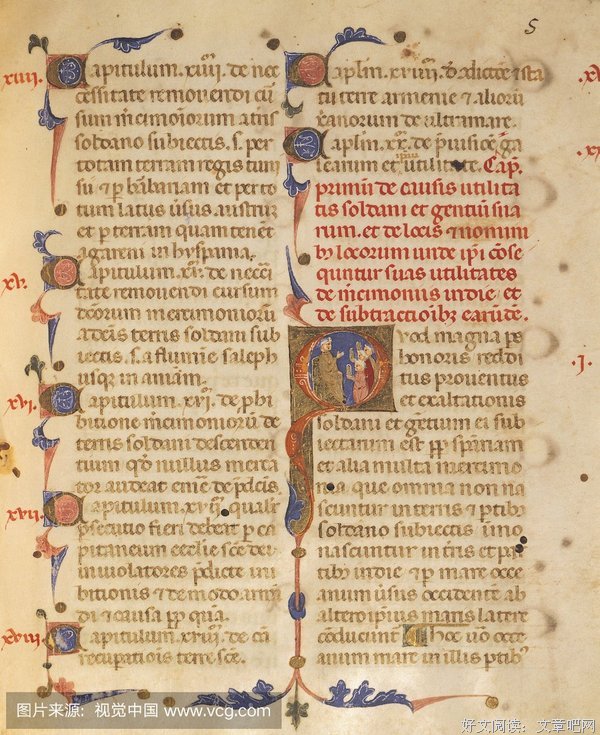 5
xiiii.
Capitulum. xiiii. de nec
cessitate removendi cur
sum mercimoniorum a terris
soldano subiectis. s. per
totam terram regis tuni
sii et per barbariam et per to
tum latus versus austrum
et per terram quam tenent
agareni in hyspania.
xv.
Capitulum. xv. de necessi
tate removendi cursum
dictorum mercimoniorum
a dictis terris soldani sub
iectis. s. a flumine saleph
usque in aniam.
xvi.
Capitulum. xvi. de prohi
bitione mercimoniorum de
terris soldani descenden
tium quod nullus merca
tor audeat emere de predictis
xvii.
Capitulum. xvii. qualiter
persecutio fieri debeat per ca
pitaneum ecclesie sancte dei
in violatores predicte inhi
bitionis et de modo arman
di et causa propter quam.
xviii.
Capitulum. xviii. de
recuperationis terre sancte.
Capitulum. xviiii. de dicte ista
tu terre armenie et aliorum
xpistianorum de ultramare.
Capitulum. xx. de provisione ga
learum et utilitate ipsius. Cap.
primum de cursus utilita
tis soldani et gentium sua
rum. et de locis et nomini
bus locorum unde ipsi conse
quntur suas utilitates
de mercimoniis indie et
de subtractionibus earumde.
.I.
Quod magna pe
honoris reddi
tus proventus
et exaltationis
soldani et gentium ei sub
iectarum est propter speciariam
et alia multa mercimo
nia que omnia non na
scuntur in terris et partibus
soldano subiectis imo
nascuntur in terris et par
tibus indie et per mare occe
anum versus occidente ab
altero ipsius maris latere
conducunt Hoc vero occe
anum mare in illis partibus
图片来源：视觉中国 www.vcg.com
好文阅读：文章吧网